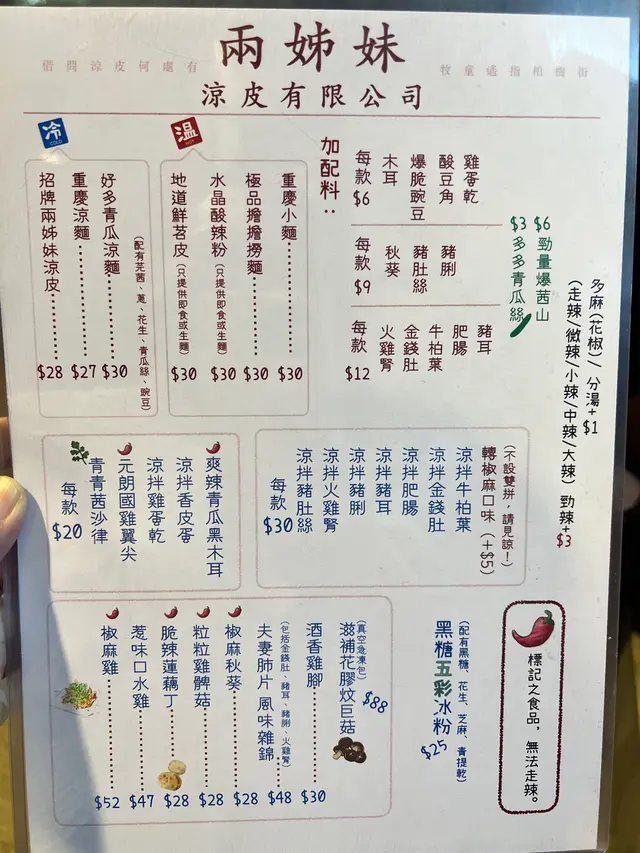 兩姊妹
借問涼皮何處有
牧童遙指柏樹街
涼皮有限公司
冷
COLD
溫
HOT
招牌兩姊妹涼皮 $28
重慶涼麵 $27
好多青瓜涼麵 $30
(配有芫茜、蔥、花生、青瓜絲、豌豆)
地道鮮苕皮(只提供即食或生麵) $30
水晶酸辣粉(只提供即食或生麵) $30
極品擔擔撈麵 $30
重慶小麵 $30
加配料:
每款$6
木耳
爆脆豌豆
酸豆角
雞蛋乾
每款$9
秋葵
豬肚絲
豬脷
每款$12
火雞腎
金錢肚
牛柏葉
肥腸
豬耳
$6 勁量爆茜山
$3 多多青瓜絲
多麻(花椒)/ 分湯+$1
(走辣/微辣/小辣/中辣/大辣) 勁辣+$3
爽辣青瓜黑木耳
涼拌香皮蛋
涼拌雞蛋乾
元朗國雞翼尖
青青茜沙律
每款$20
(不設雙拼,請見諒!)
轉椒麻口味 (+$5)
涼拌牛柏葉
涼拌金錢肚
涼拌肥腸
涼拌豬耳
涼拌豬脷
涼拌火雞腎
涼拌豬肚絲
每款$30
(真空急凍包)
滋補花膠炆巨菇 $88
酒香雞腳 $30
(包括金錢肚、豬耳、豬脷、火雞腎)
夫妻肺片 風味雜錦 $48
椒麻秋葵 $28
粒粒雞髀菇 $28
脆辣蓮藕丁 $28
惹味口水雞 $47
椒麻雞 $52
(配有黑糖、花生、芝麻、青提乾)
黑糖五彩冰粉
$25
標記之食品,無法走辣。